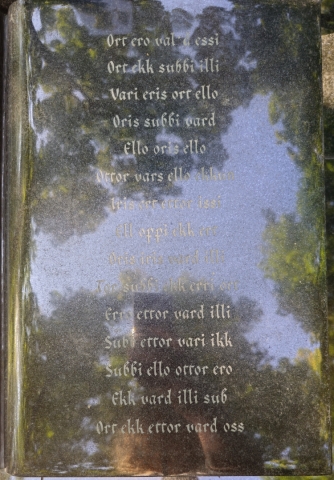 Ort ero val d essi
Ort ekk subbi illi
Vari eris ort ello
Oris subbi vard
Ello oris ello
Ottor vars ello
Iris ort ettor issi
oppi ikk
Oris eris vard illi
subbi ekk erri
Ero ettor vard illi
Subt ettor vari ikk
Subbi ello ottor ero
Ekk vard illi sub
Ort ekk ettor vard oss